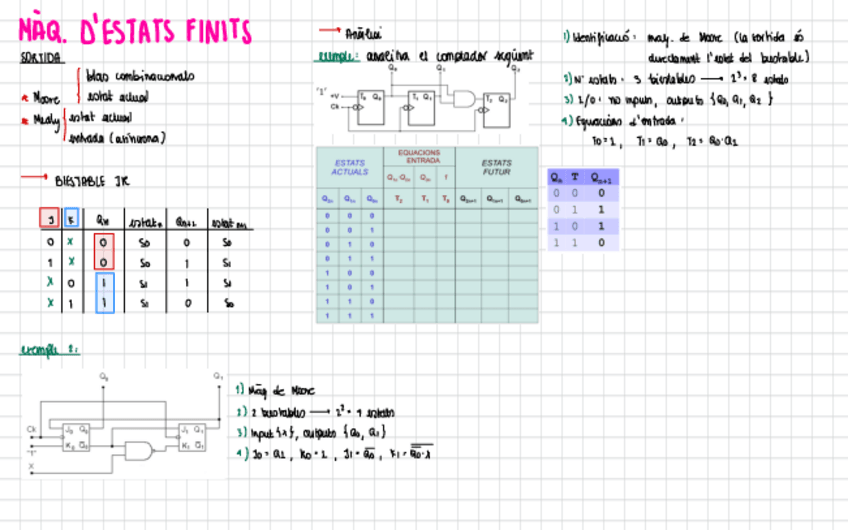 MÀQ. D'ESTATS FINITS
SORTIDA
* Moore
blas combinacionals
estat actual
* Mealy
estat actual
entrada (asíncrona)
→ BIESTABLE JK
J K Qn estatn Qn+1 estatn+1
0 X 0 S0 0 S0
1 X 0 S0 1 S1
X 0 1 S1 1 S1
X 1 1 S1 0 S0
→ Anàlisi
exemple: analitza el comptador següent
Q0 Q1 Q2
'1' +V T0 Q0 T1 Q1 T2 Q2
Ck
ESTATS ACTUALS EQUACIONS ENTRADA ESTATS FUTUR
Q1n·Q0n Q0n 1
Q2n Q1n Q0n T2 T1 T0 Q2n+1 Q1n+1 Q0n+1
0 0 0
0 0 1
0 1 0
0 1 1
1 0 0
1 0 1
1 1 0
1 1 1
1) Identificació: maq. de Moore (la sortida és
directament l'estat del biestable)
2) Nº estats: 3 biestables → 2³ = 8 estats
3) I/O: no inputs, outputs {Q0, Q1, Q2}
4) Equacions d'entrada:
T0=1, T1=Q0, T2=Q0·Q1
Qn T Qn+1
0 0 0
0 1 1
1 0 1
1 1 0
exemple 2:
Q0 Q1
Ck
J0 Q0 J1 Q1
'1' K0 Q̅0 K1 Q̅1
X
1) Màq de Moore
2) 2 biestables → 2² = 4 estats
3) Input {x}, outputs {Q0, Q1}
4) J0=Q1, K0=1, J1=Q̅0, K1=Q̅0·x